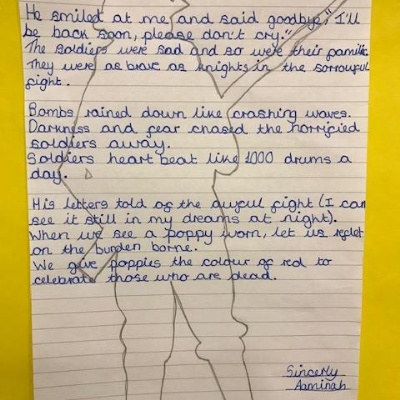 He smiled at me and said goodbye," I'll
be back soon, please don't cry."
The soldiers were sad and so were their familie
They were as brave as knights in the sorrowful
fight.
Bombs rained down like crashing waves.
Darkness and fear chased the horrified
soldiers away.
Soldiers heart beat like 1000 drums a
day.
His letters told of the awful fight (I can
see it still in my dreams at night).
When we see a poppy worn, let us reflet
on the burden borne.
We give poppies the colour of red to
celebrate those who are dead.
Sincerly
Aaminah